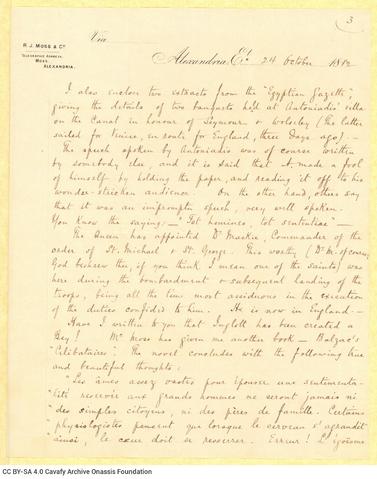 3
R. J. MOSS & Co.
TELEGRAPHIC ADDRESS,
MOSS.
ALEXANDRIA.
Via
Alexandria, Et. 24 October 1882
I also enclose two extracts from the "Egyptian Gazette"
giving the details of two banquets held at Antoniadis' villa
on the Canal in honour of Seymour & Wolseley (the latter
sailed for Venice, en route for England, three days ago). —
The speech spoken by Antoniadis was of course written
by somebody else, and it is said that A. made a fool
of himself by holding the paper, and reading it off to his
wonder-stricken audience. On the other hand, others say
that it was an impromptu speech, very well spoken.
You know the saying: — "Tot homines, tot sententiae" —
The Queen has appointed Dr Mackie, Commander of the
order of St. Michael & St. George. This worthy (Dr M. of course,
God beshrew thee, if you think I mean one of the Saints) was
here during the bombardment & subsequent landing of the
troops, being all the time most assiduous in the execution
of the duties confided to him. He is now in England. —
Have I written to you that Inglott has been created a
Bey! Mr Moss has given me another book — Balzac's
"Célibataires". The novel concludes with the following true
and beautiful thoughts:
"Les âmes assez vastes pour épouser une sentimenta-
"lité réservée aux grands hommes ne seront jamais ni
"des simples citoyens, ni des pères de famille. Certains
"physiologistes pensent que lorsque le cerveau s'agrandit
"ainsi, le cœur doit se resserrer. Erreur! L'égoïsme
CC BY-SA 4.0 Cavafy Archive Onassis Foundation